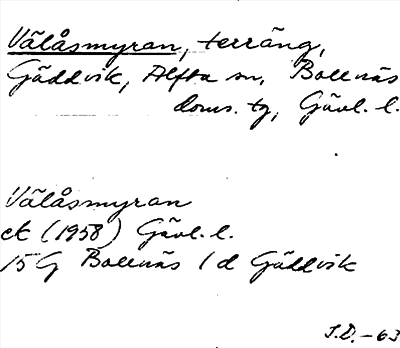 Välåsmyran, terräng,
Gäddvik, Alfta sn, Bollnäs
doms. tg, Gävl. l.
Välåsmyran
ek (1958) Gävl. l.
15G Bollnäs 1d Gäddvik
S.D. -63